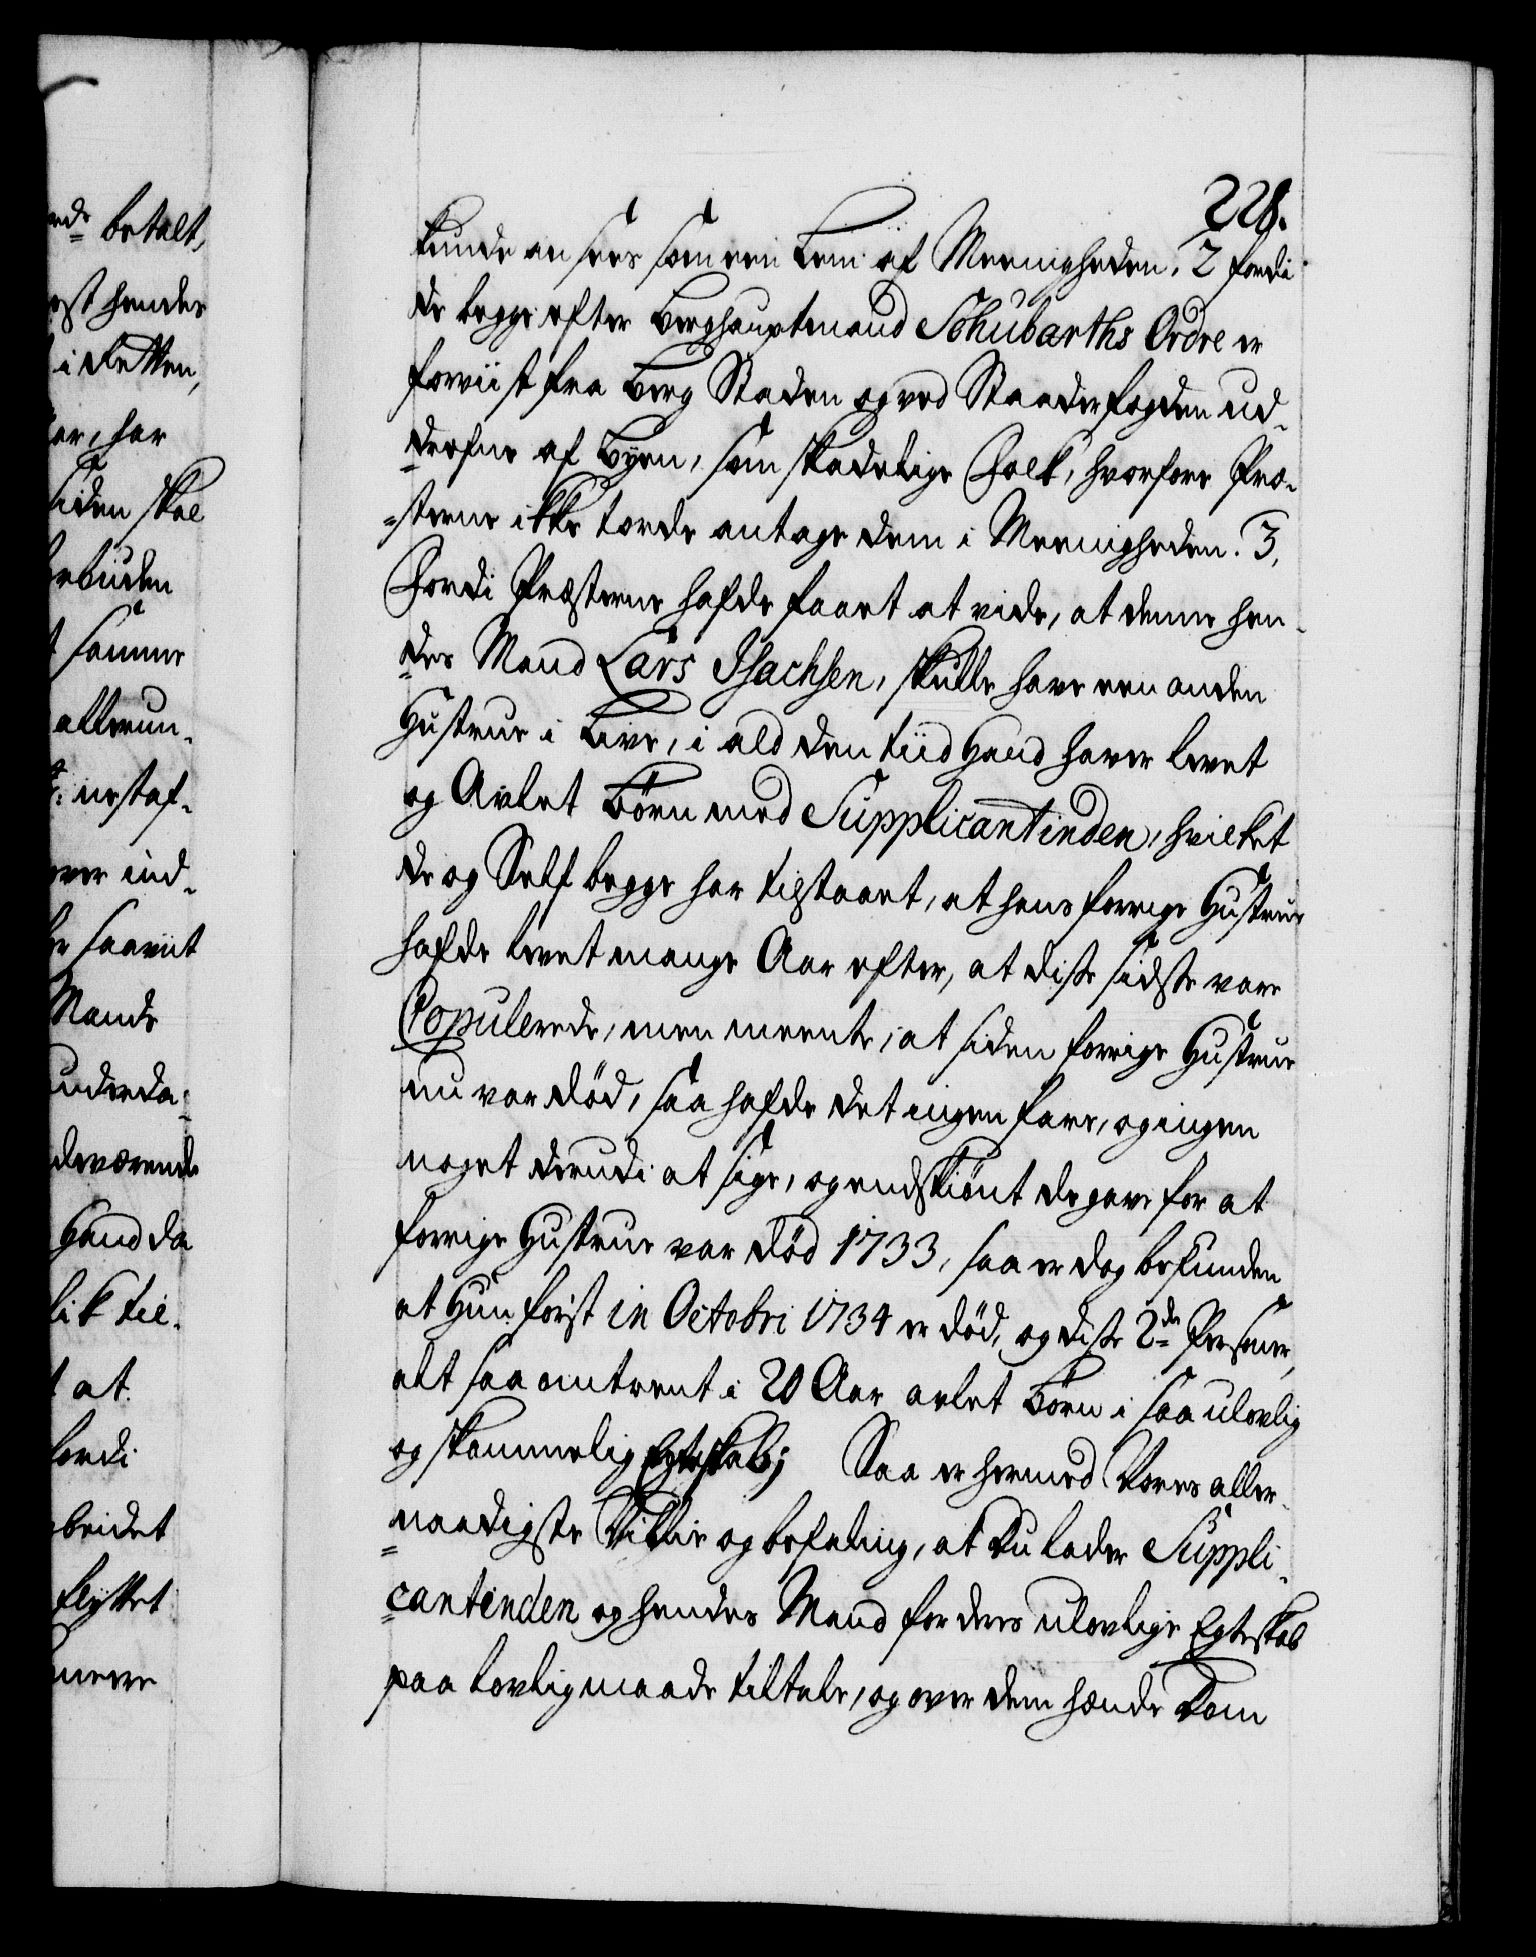 228.
kunde an sees som een Lem af Meenigheden. 2 fordi
de begge efter Berghauptmand Schubarths Ordre er
forviist fra Berg Staden og ved Staaderfogden ud-
drefne af Byen, som skadelige Folk, hvorfore Præ-
sterne ikke torde antage dem i Meenigheden. 3,
Fordi Præsterne hafde faaet at vide, at denne hen-
des Mand Lars Isachsen, skulle have een anden
Hustrue i Live, i ald den tiid Hand haver levet
og Avlet Børn med Supplicantinden, hvilket
de og Self begge har tilstaaet, at hans forrige Hustrue
hafde levet mange Aar efter, at disse sidste vare
Copulerede, men meente, at siden forrige Hustrue
nu var død, saa hafde det ingen fare, og ingen
noget derudi at sige, og endskiønt de gave for at
forrige Hustrue var død 1733, saa er dog befunden
at Hun først in Octobri 1734 er død, og disse 2de Persohner,
alt saa omtrent i 20 Aar avlet Børn i saa ulovlig
og skammelig Egteskab; Saa er hermed Vores aller-
naadigste Villie og befaling, at Du lader Suppli-
cantinden og hendes Mand for deres ulovlige Egteskab
paa lovlig maade tiltale, og over dem hænde Dom
betalt,
hendes
i Retten,
har
siden skal
samme
allerun-
ind-
saaviit
Mands
Hand da
til-
at
fordi
flyttet